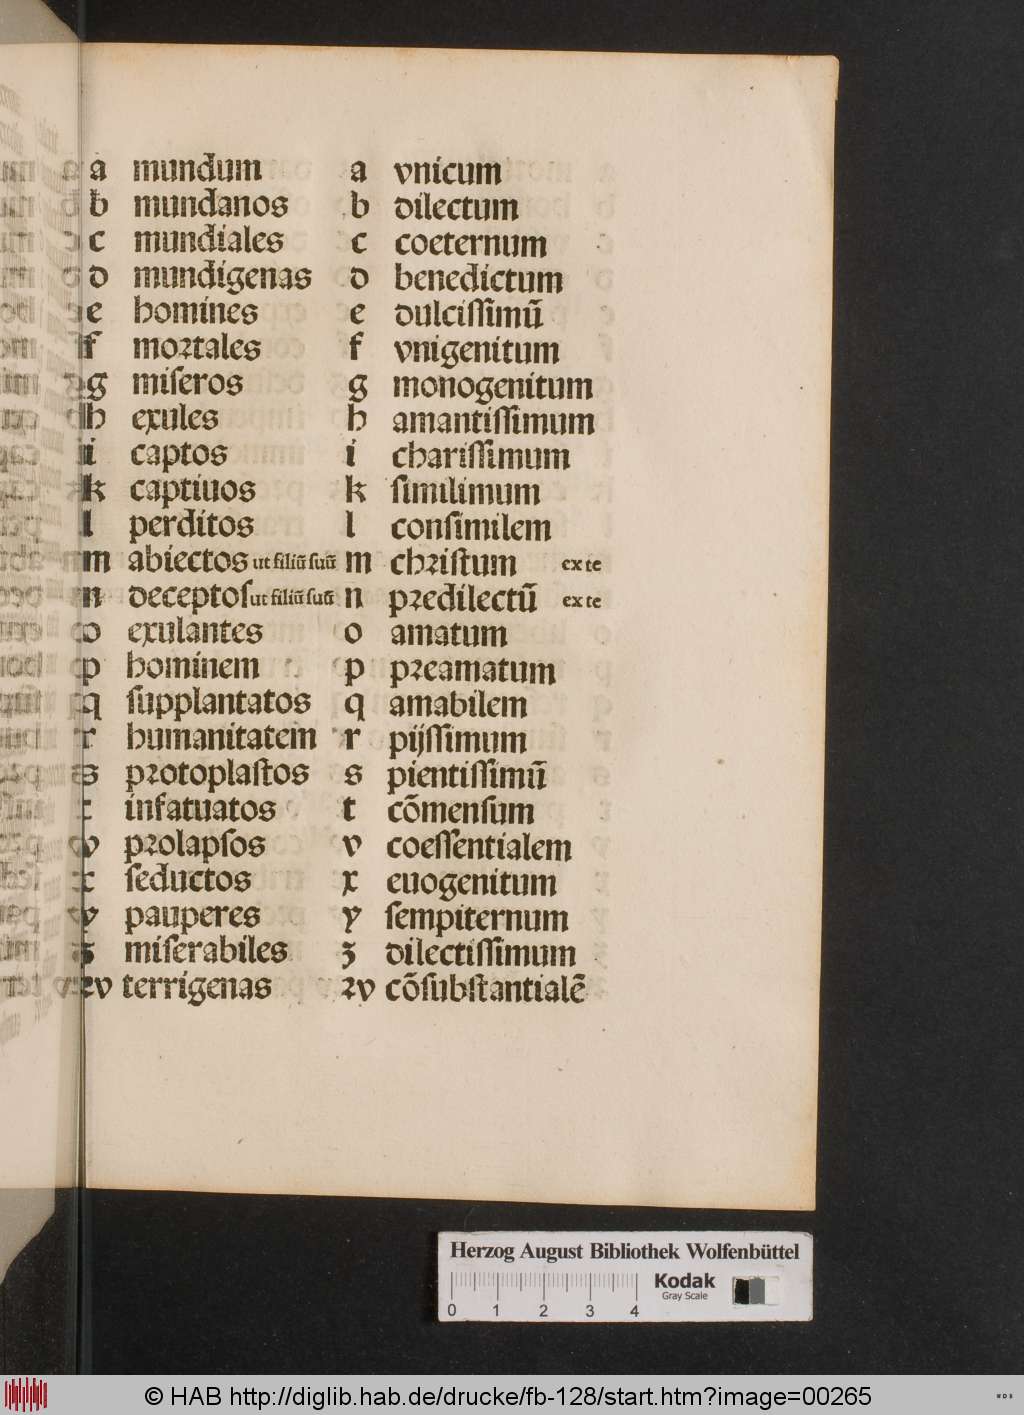 a mundum
b mundanos
c mundiales
d mundigenas
e homines
f mortales
g miseros
h exules
i captos
k captiuos
l perditos
m abiectos ut filiū suū
n deceptos ut filiū suū
o exulantes
p hominem
q supplantatos
r humanitatem
s protoplastos
t infatuatos
v prolapsos
x seductos
y pauperes
z miserabiles
rv terrigenas
a vnicum
b dilectum
c coeternum
d benedictum
e dulcissimū
f vnigenitum
g monogenitum
h amantissimum
i charissimum
k similimum
l consimilem
m christum ex te
n predilectū ex te
o amatum
p preamatum
q amabilem
r pijssimum
s pientissimū
t cōmensum
v coessentialem
x euogenitum
y sempiternum
z dilectissimum
rv cōsubstantialē
Herzog August Bibliothek Wolfenbüttel
0 1 2 3 4
Kodak
Gray Scale
© HAB http://diglib.hab.de/drucke/fb-128/start.htm?image=00265